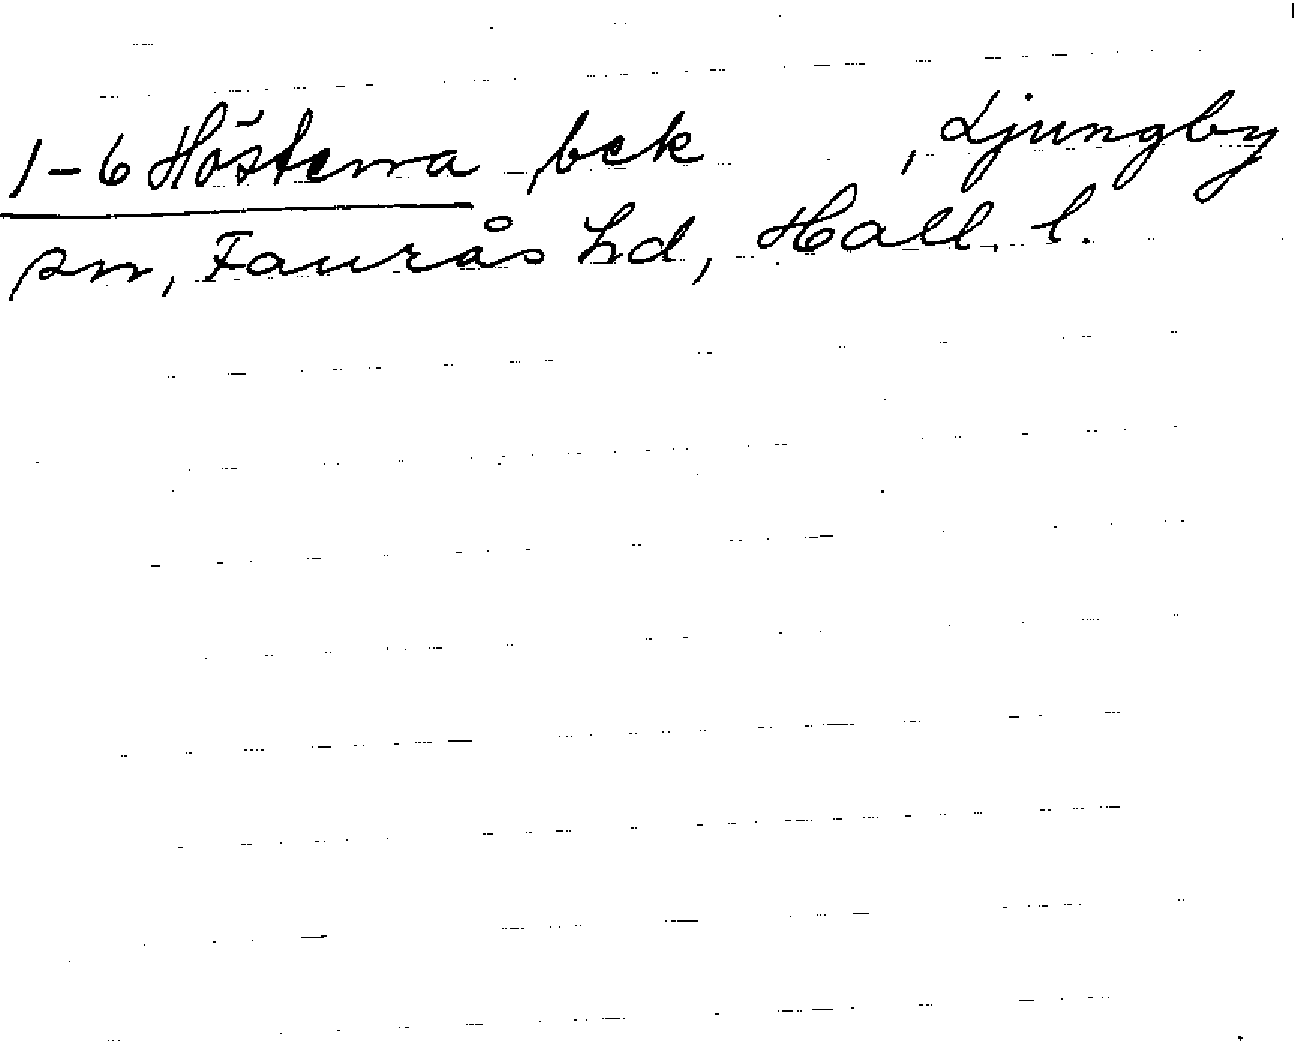 1-6 Höstena, bek , Ljungby
sn, Faurås hd, Hall. l.